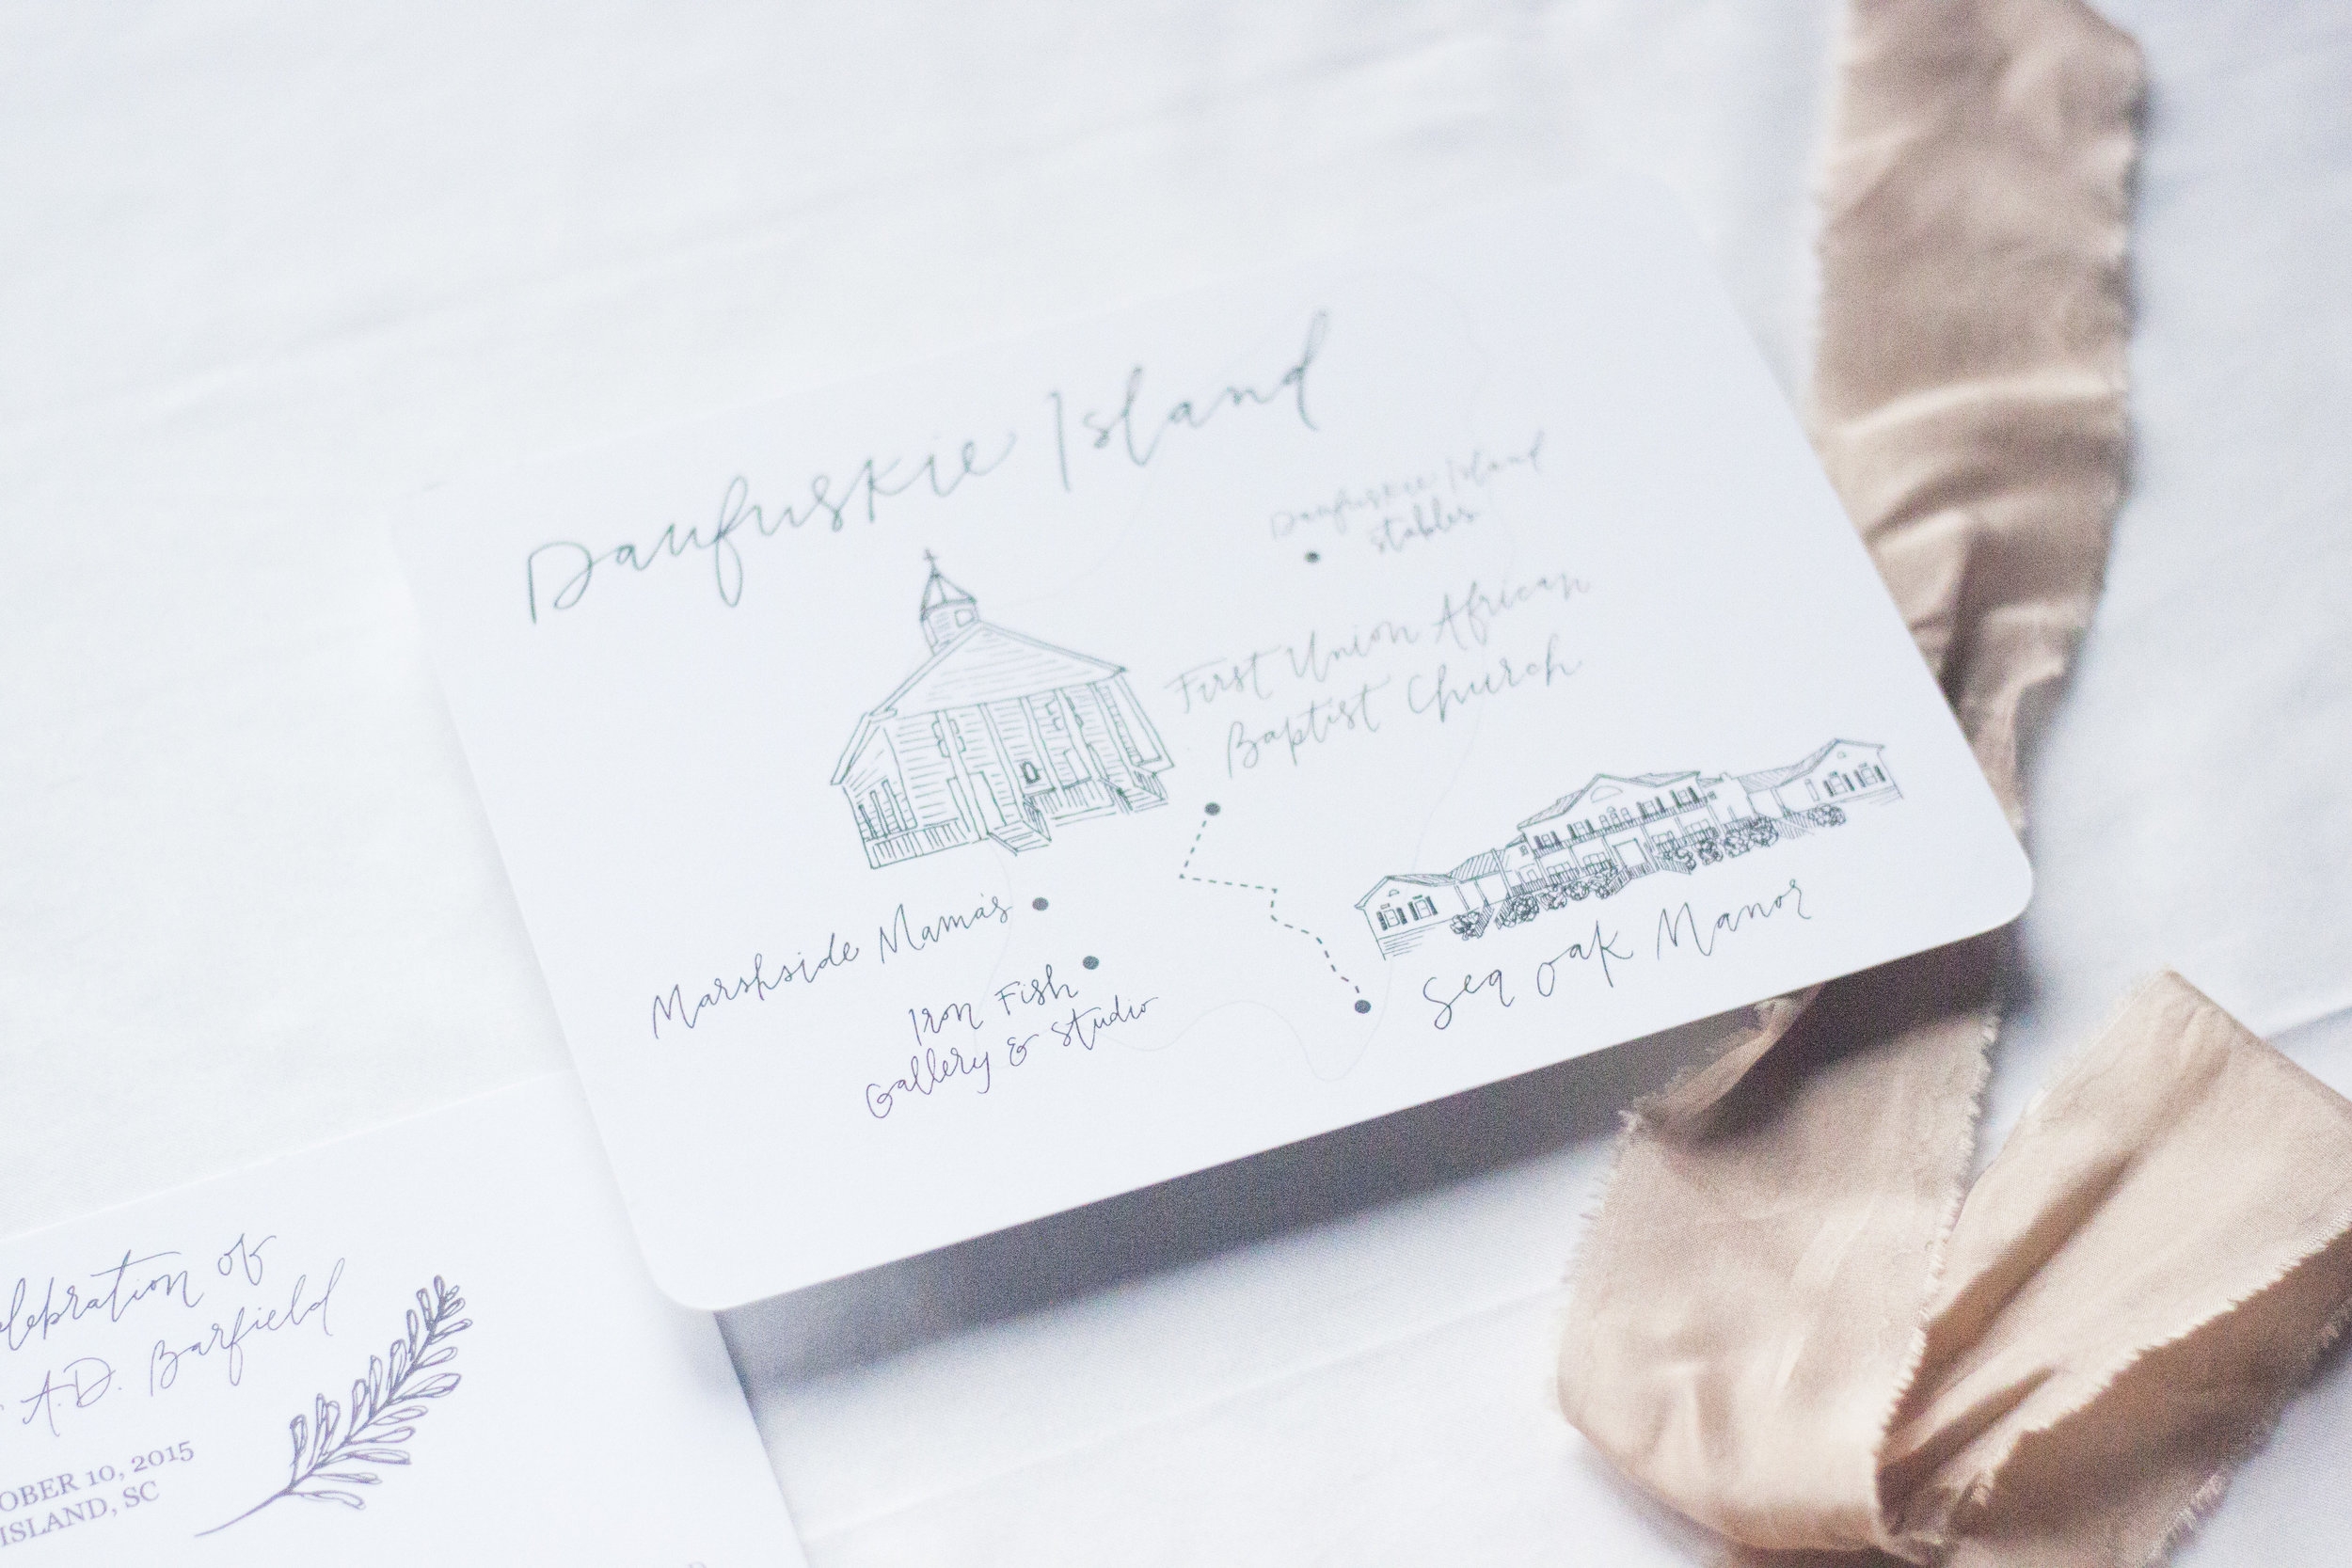 Daufuskie Island
Daufuskie Island
stables
First Union African
Baptist Church
Marshside Mama's
Iron Fish
Gallery & Studio
Sea Oak Manor
elebration of
A.D. Barfield
OBER 10, 2015
ISLAND, SC